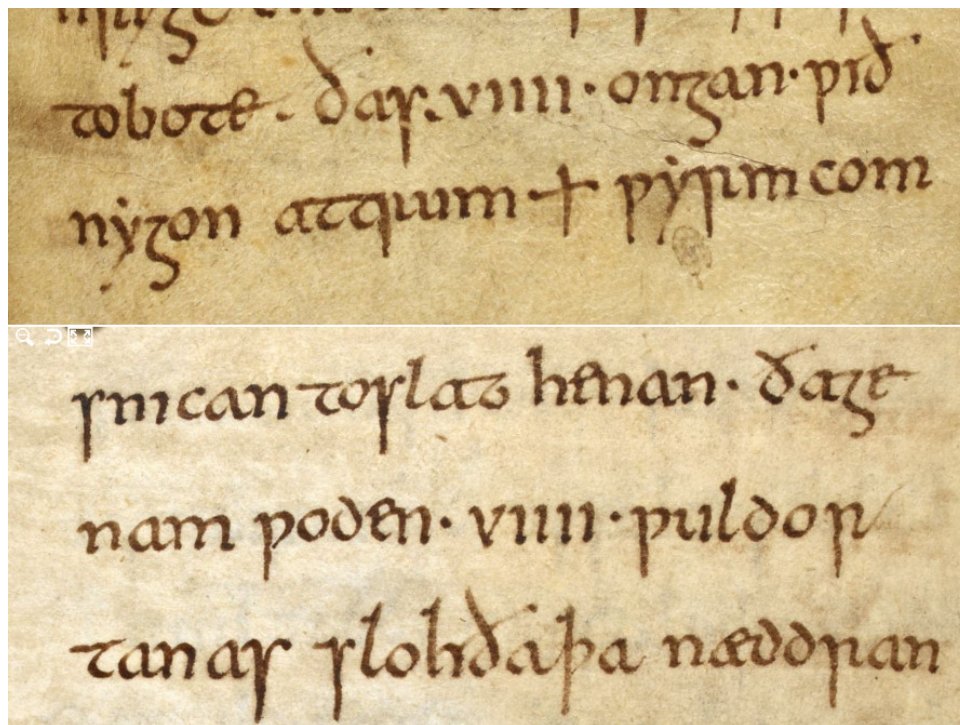 tobote · ðas · viiii · ongan · ƿið
nẏgon attrum + ƿẏrm com
snican toslat henan · ðage
nam ƿoden · viiii · ƿuldor
tanas sloh ða þa næddran